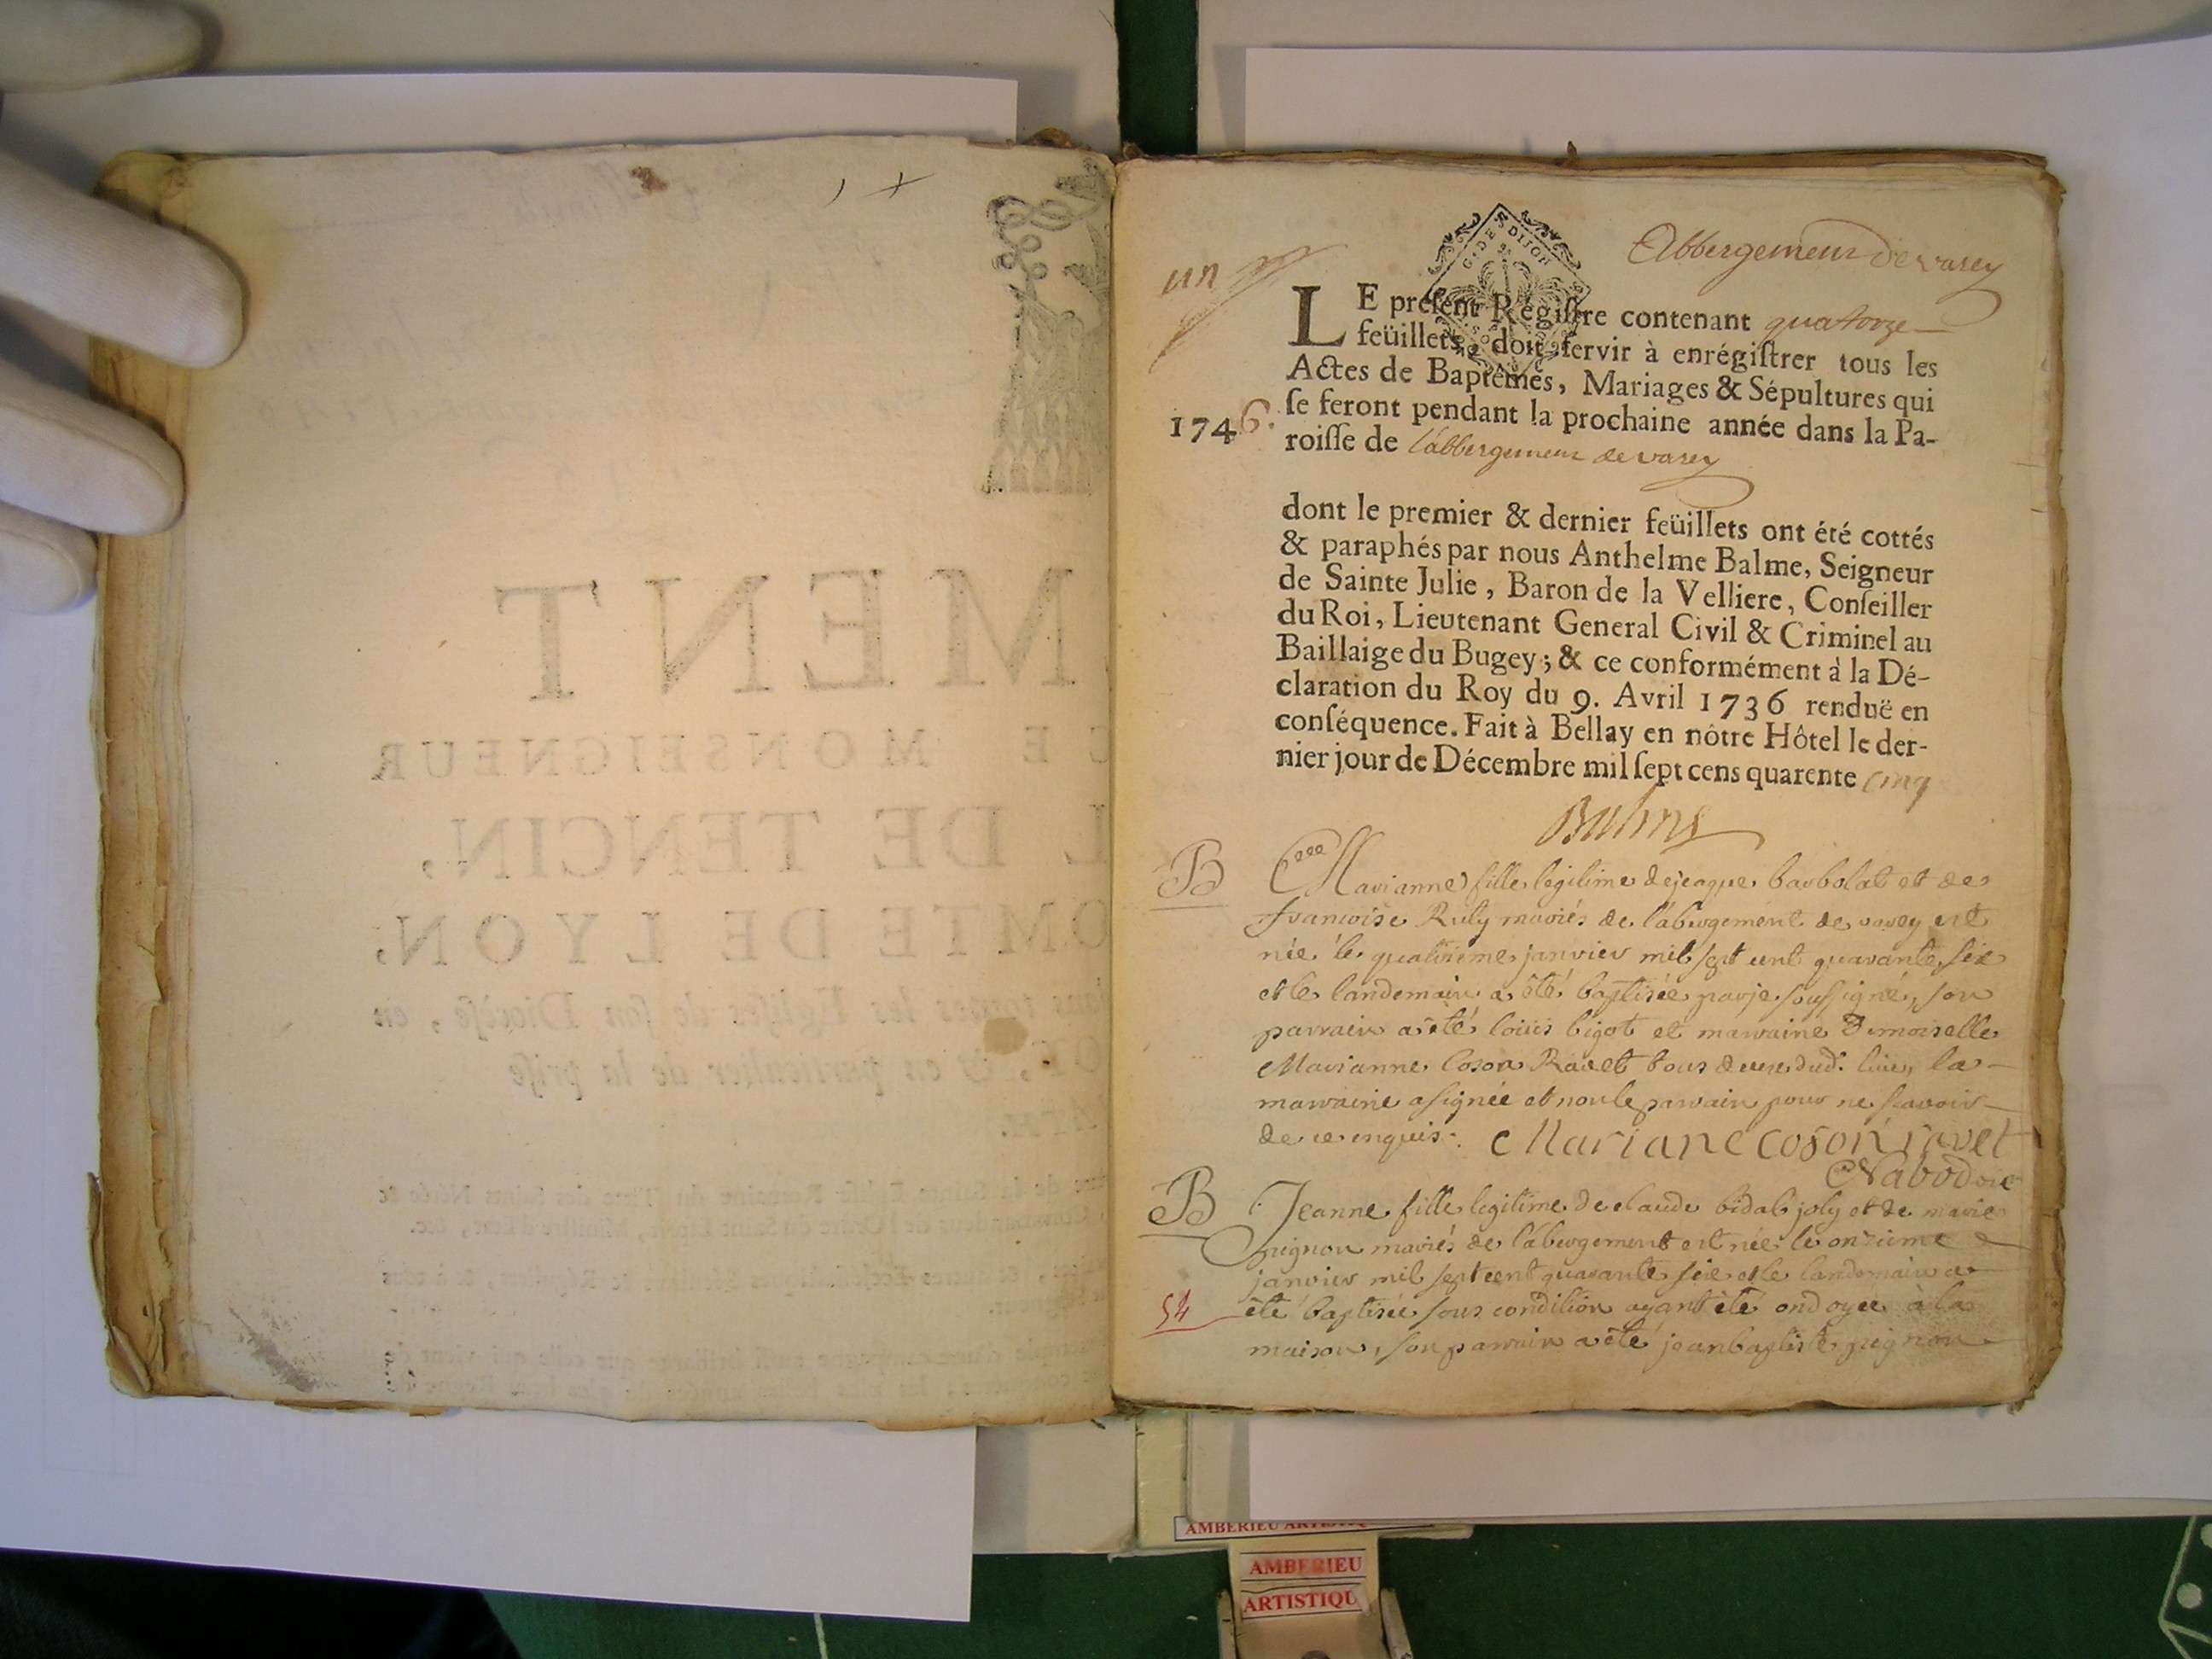 MENT
CE MONSEIGNEUR
L DE TENCIN,
OMTE DE LYON,
toutes les Eglises de son Diocèse, en
& en particulier de la prise
un
Abbergement de varey
G. DES DIJON
LE présent Régistre contenant quatorze
feüillets, doit servir à enrégistrer tous les
Actes de Baptêmes, Mariages & Sépultures qui
se feront pendant la prochaine année dans la Pa-
1746.
roisse de l'abbergement de varey
dont le premier & dernier feüillets ont été cottés
& paraphés par nous Anthelme Balme, Seigneur
de Sainte Julie, Baron de la Velliere, Conseiller
du Roi, Lieutenant General Civil & Criminel au
Baillaige du Bugey; & ce conformément à la Dé-
claration du Roy du 9. Avril 1736 renduë en
conséquence. Fait à Bellay en nôtre Hôtel le der-
nier jour de Décembre mil sept cens quarente cinq
Balme
B Marianne fille legitime de jacque barbolat et de
francoise Ruly mariés de l'abergement de varey est
née le quatrieme janvier mil sept cent quarante six
et le landemain a été baptisée par je soussigné, son
parrain a été loüis bigot et marraine Dmoiselle
Marianne Coson Ravet tous deux dud. lieu, la
marraine a signée et non le parrain pour ne scavoir
de ce enquis. Mariane coson ravet
Nabod
B Jeanne fille legitime de claude bidal joly et de marie
pignon mariés de l'abergement est née le onzieme
janvier mil sept cent quarante six et le landemain a
54 été baptisée sous condition ayant été ondoyee à la
maison, son parrain a été jean baptiste pignon
AMBERIEU ARTISTIQ
AMBERIEU
ARTISTIQU